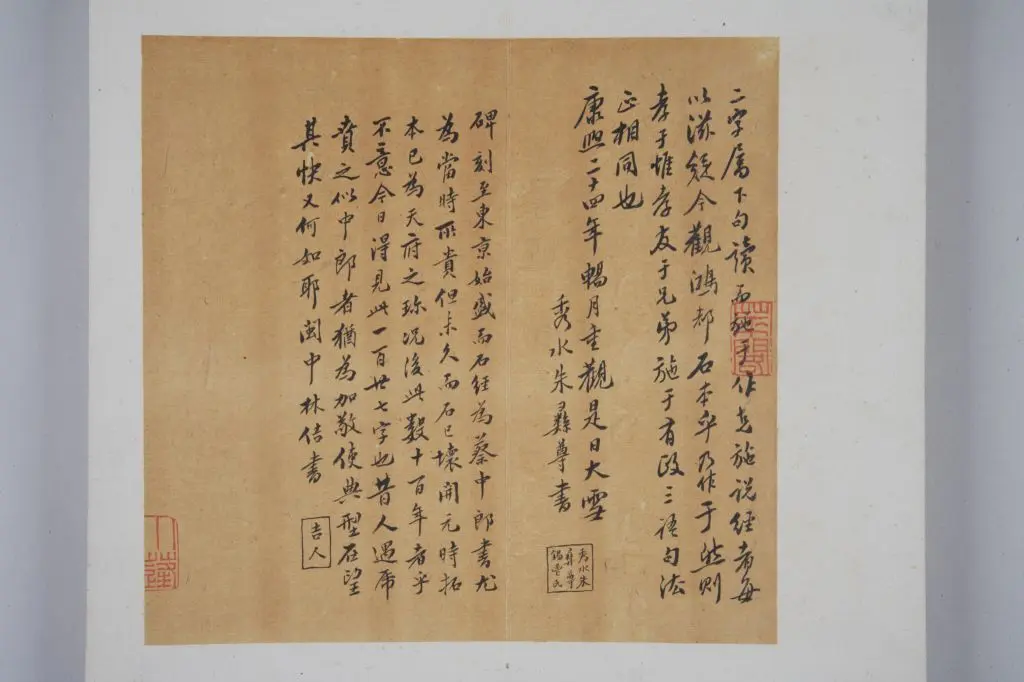 二字屬下句讀而施于作克施說經者每
以滋疑今觀鴻都石本乎乃作于然則
孝于惟孝友于兄弟施于有政三語句法
正相同也
康熙二十四年暢月重觀是日大雪
秀水朱彝尊書
秀水朱
彝尊
錫鬯氏
碑刻至東京始盛而石經為蔡中郎書尤
為當時所貴但未久而石已壞開元時拓
本已為天府之珍况後此數十百年者乎
不意今日得見此一百廿七字也昔人遇虎
賁之似中郎者猶為加敬使典型在望
其快又何如耶閩中林佶書
吉人